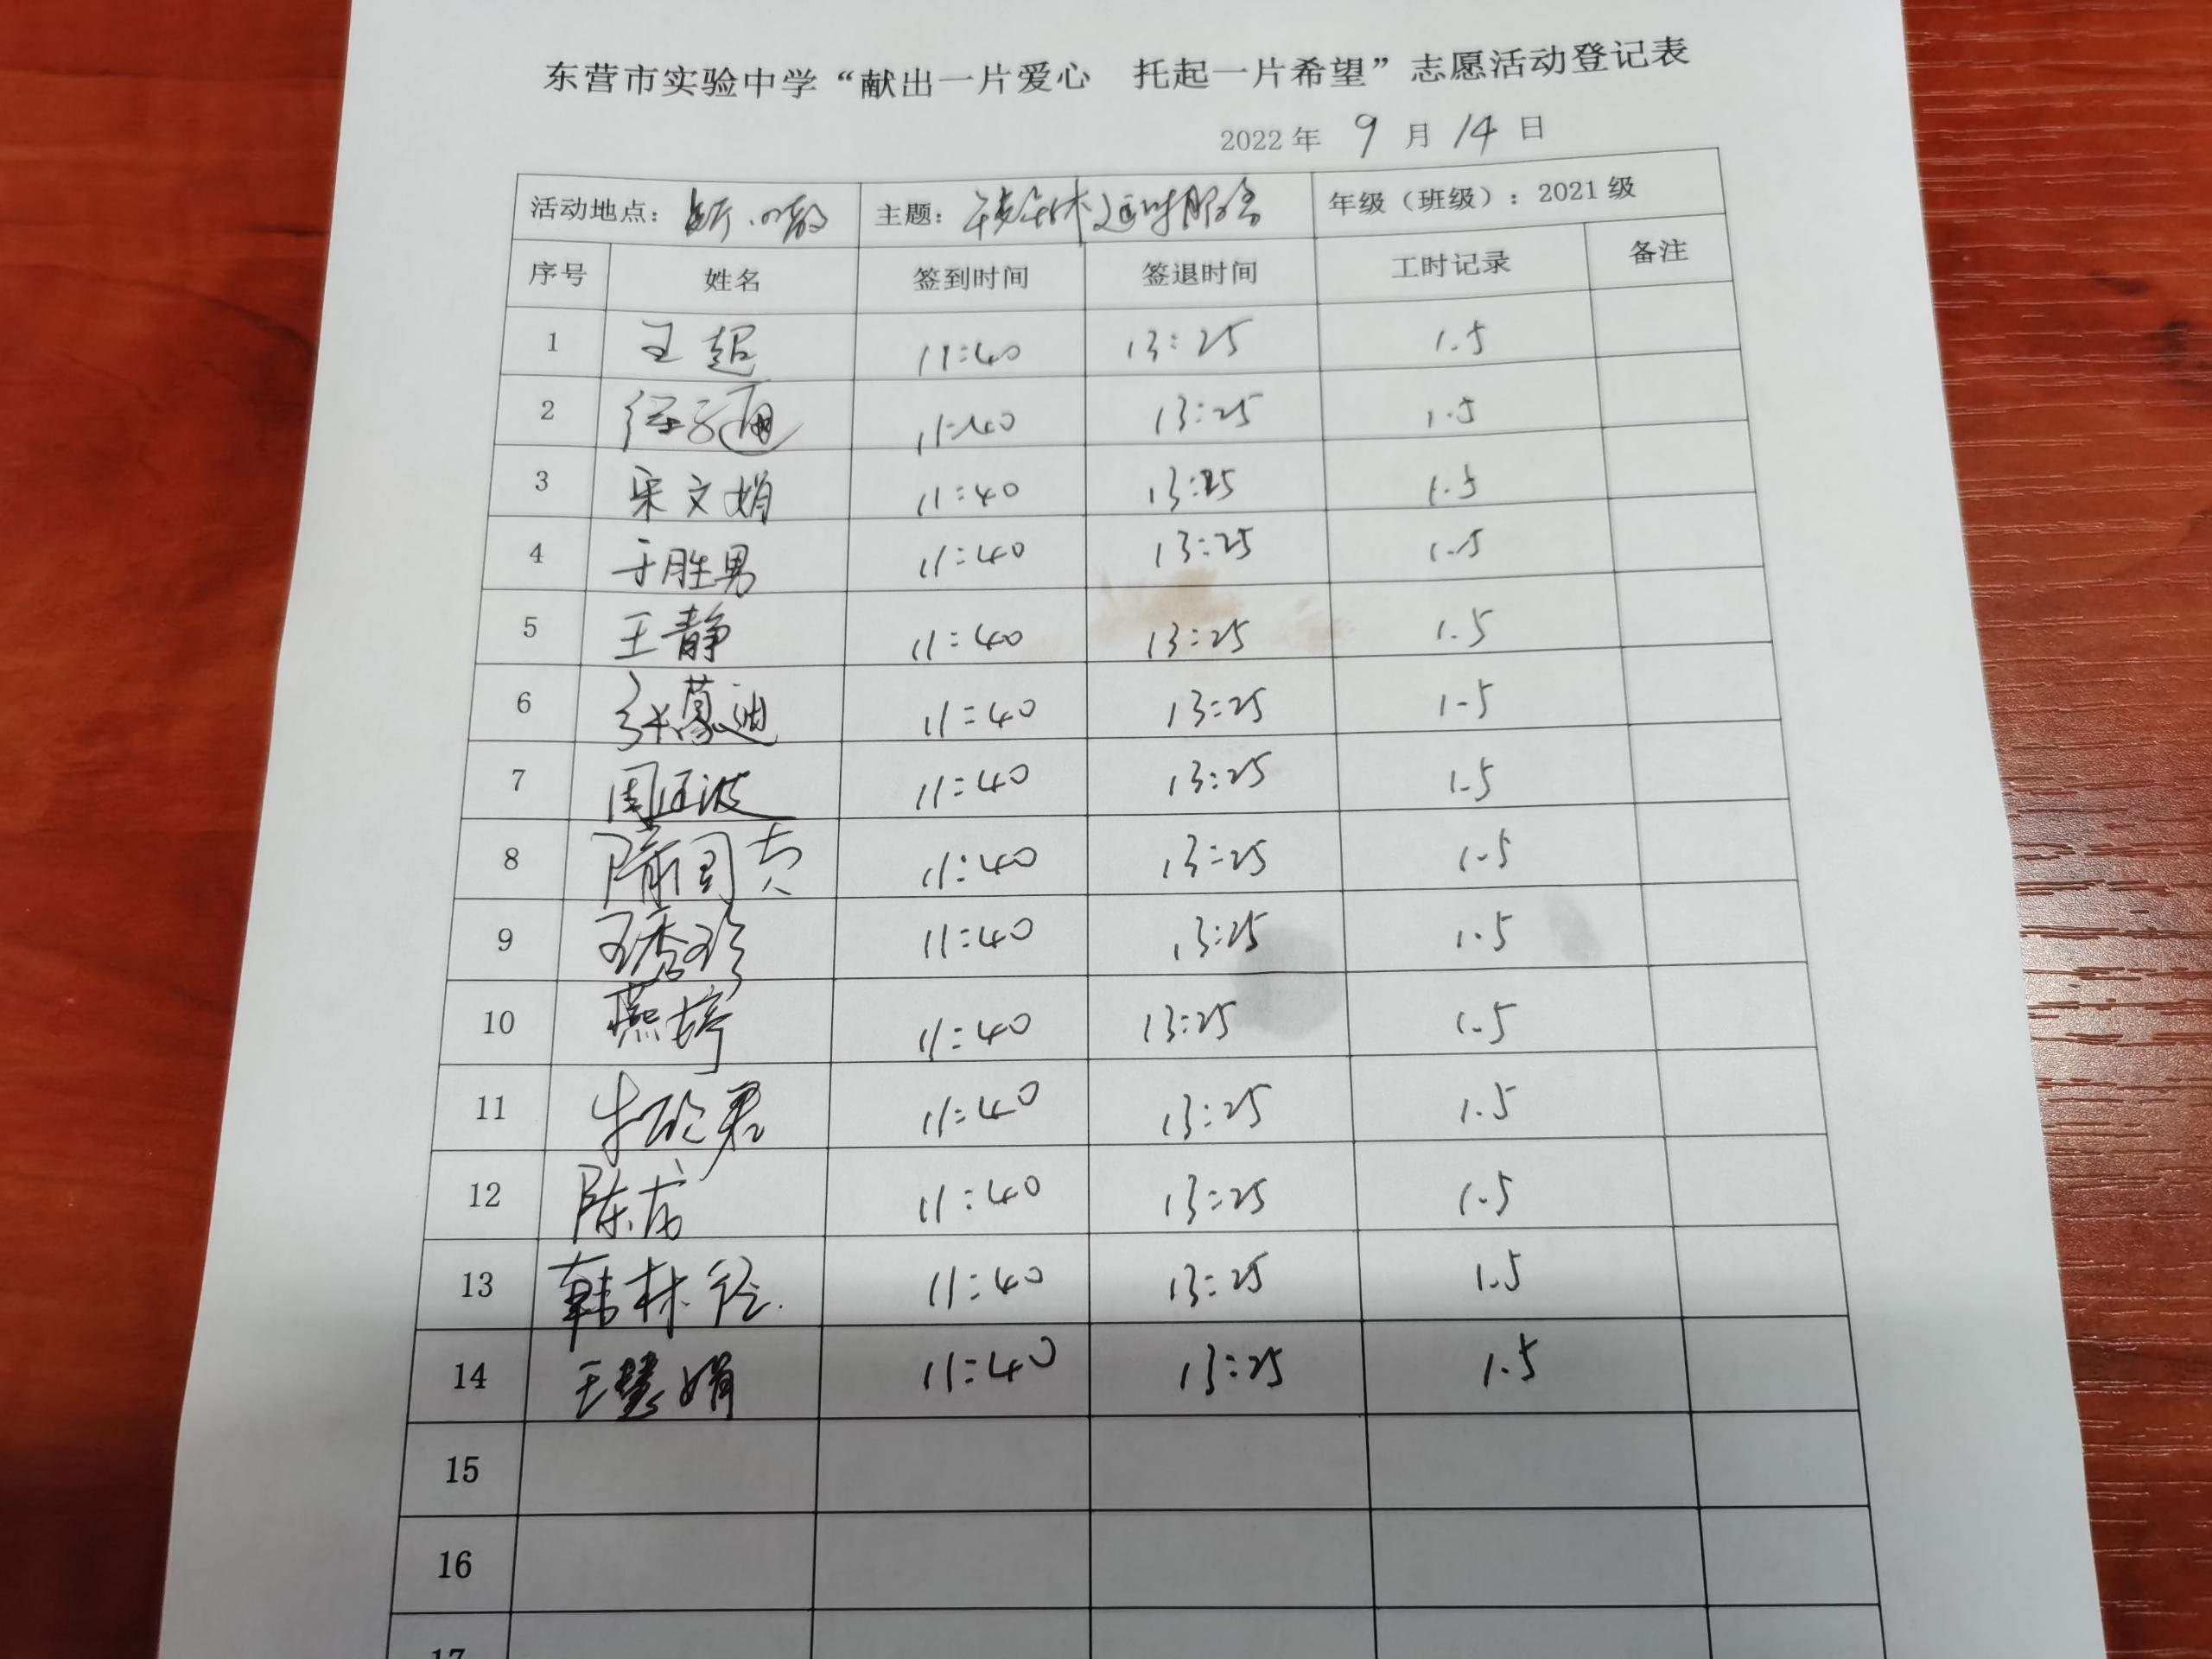 东营市实验中学“献出一片爱心 托起一片希望”志愿活动登记表
2022 年 9 月 14 日
活动地点： 主题： 延时服务 年级（班级）：2021 级
序号 姓名 签到时间 签退时间 工时记录 备注
1 王超 11:40 13:25 1.5
2 11:40 13:25 1.5
3 宋文娟 11:40 13:25 1.5
4 于胜男 11:40 13:25 1.5
5 王静 11:40 13:25 1.5
6 张蔓迪 11:40 13:25 1.5
7 周正波 11:40 13:25 1.5
8 11:40 13:25 1.5
9 王秀珍 11:40 13:25 1.5
10 燕婷 11:40 13:25 1.5
11 11:40 13:25 1.5
12 陈 11:40 13:25 1.5
13 韩林 11:40 13:25 1.5
14 王慧娟 11:40 13:25 1.5
15
16
17